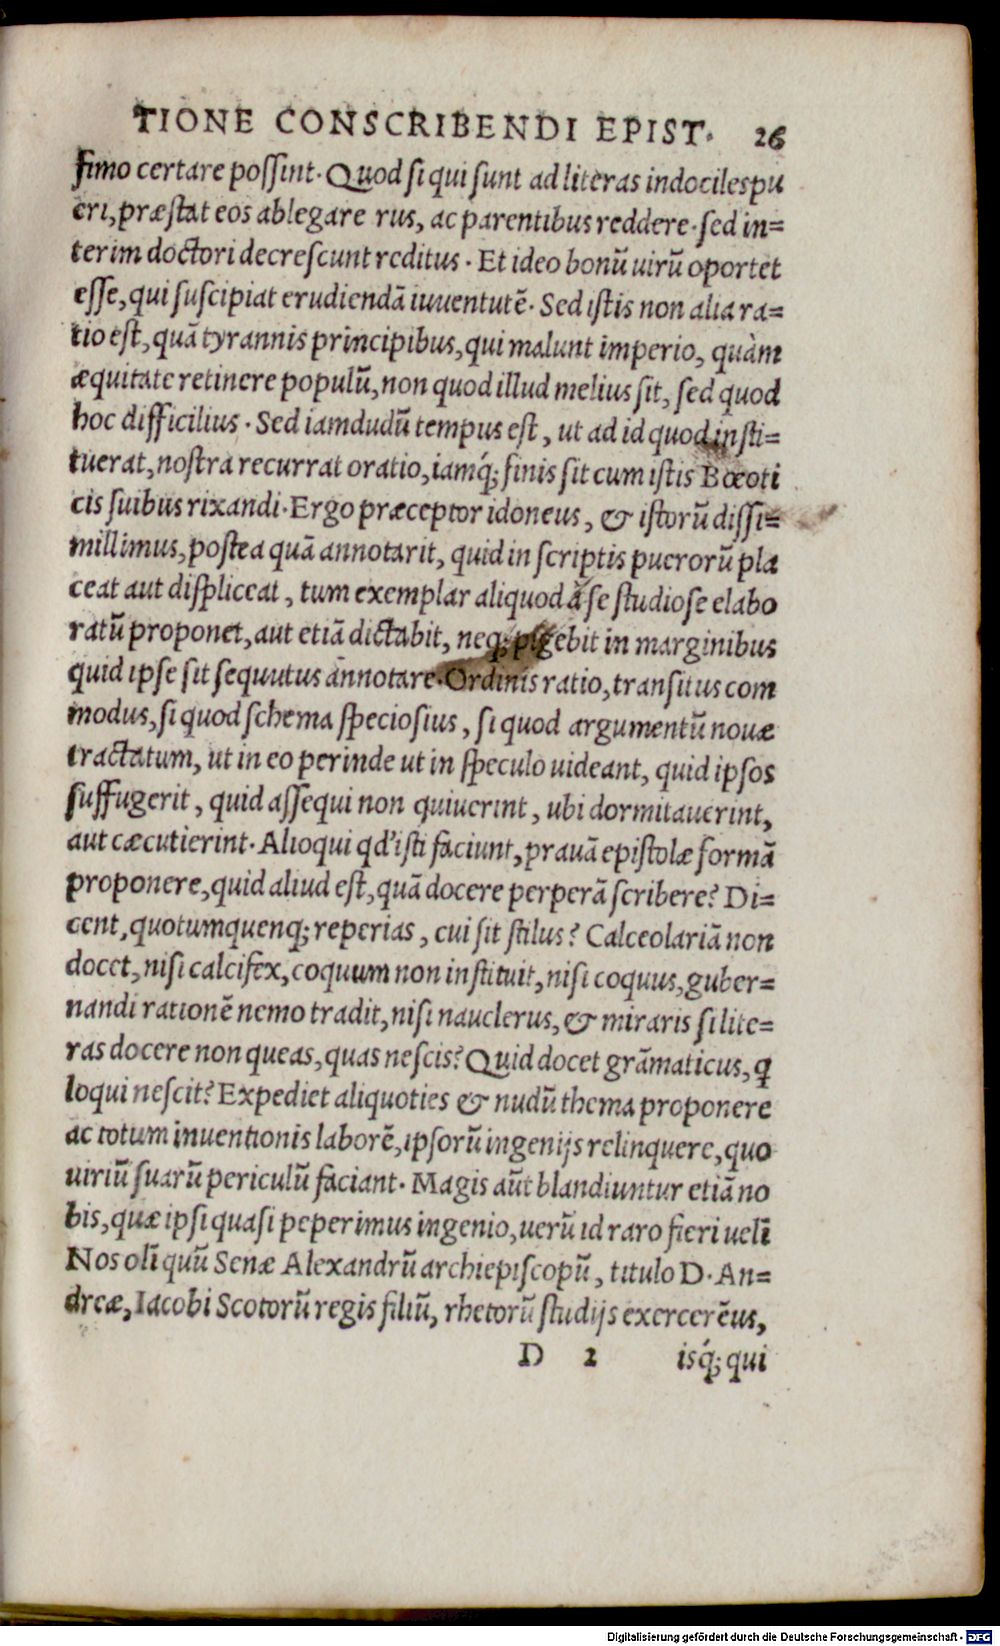 TIONE CONSCRIBENDI EPIST. 26
ſimo certare poſſint. Quod ſi qui ſunt ad literas indociles pu
eri, præſtat eos ablegare rus, ac parentibus reddere. ſed in=
terim doctori decreſcunt reditus. Et ideo bonũ uirũ oportet
eſſe, qui ſuſcipiat erudiendã iuuentutẽ. Sed iſtis non alia ra=
tio eſt, quã tyrannis principibus, qui malunt imperio, quàm
æquitate retinere populũ, non quod illud melius ſit, ſed quod
hoc difficilius. Sed iamdudũ tempus eſt, ut ad id quod inſti=
tuerat, noſtra recurrat oratio, iamq́; finis ſit cum iſtis Bœoti
cis ſuibus rixandi. Ergo præceptor idoneus, & iſtorũ diſſi=
millimus, poſtea quã annotarit, quid in ſcriptis puerorũ pla
ceat aut diſpliceat, tum exemplar aliquod à ſe ſtudioſe elabo
ratũ proponet, aut etiã dictabit, neq; pigebit in marginibus
quid ipſe ſit ſequutus annotare. Ordinis ratio, tranſitus com
modus, ſi quod ſchema ſpecioſius, ſi quod argumentũ nouæ
tractatum, ut in eo perinde ut in ſpeculo uideant, quid ipſos
ſuffugerit, quid aſſequi non quiuerint, ubi dormitauerint,
aut cæcutierint. Alioqui qd' iſti faciunt, prauã epiſtolæ formã
proponere, quid aliud eſt, quã docere perperã ſcribere? Di=
cent, quotumquenq; reperias, cui ſit ſtilus? Calceolariã non
docet, niſi calcifex, coquum non inſtituit, niſi coquus, guber=
nandi rationẽ nemo tradit, niſi nauclerus, & miraris ſi lite=
ras docere non queas, quas neſcis? Quid docet grãmaticus, ꝗ
loqui neſcit? Expediet aliquoties & nudũ thema proponere
ac totum inuentionis laborẽ, ipſorũ ingenijs relinquere, quo
uiriũ ſuarũ periculũ faciant. Magis aũt blandiuntur etiã no
bis, quæ ipſi quaſi peperimus ingenio, uerũ id raro fieri uelĩ
Nos olĩ quũ Senæ Alexandrũ archiepiſcopũ, titulo D. An=
dreæ, Iacobi Scotorũ regis filiũ, rhetorũ ſtudijs exercerẽus,
D 2 isq́; qui
Digitalisierung gefördert durch die Deutsche Forschungsgemeinschaft - DFG